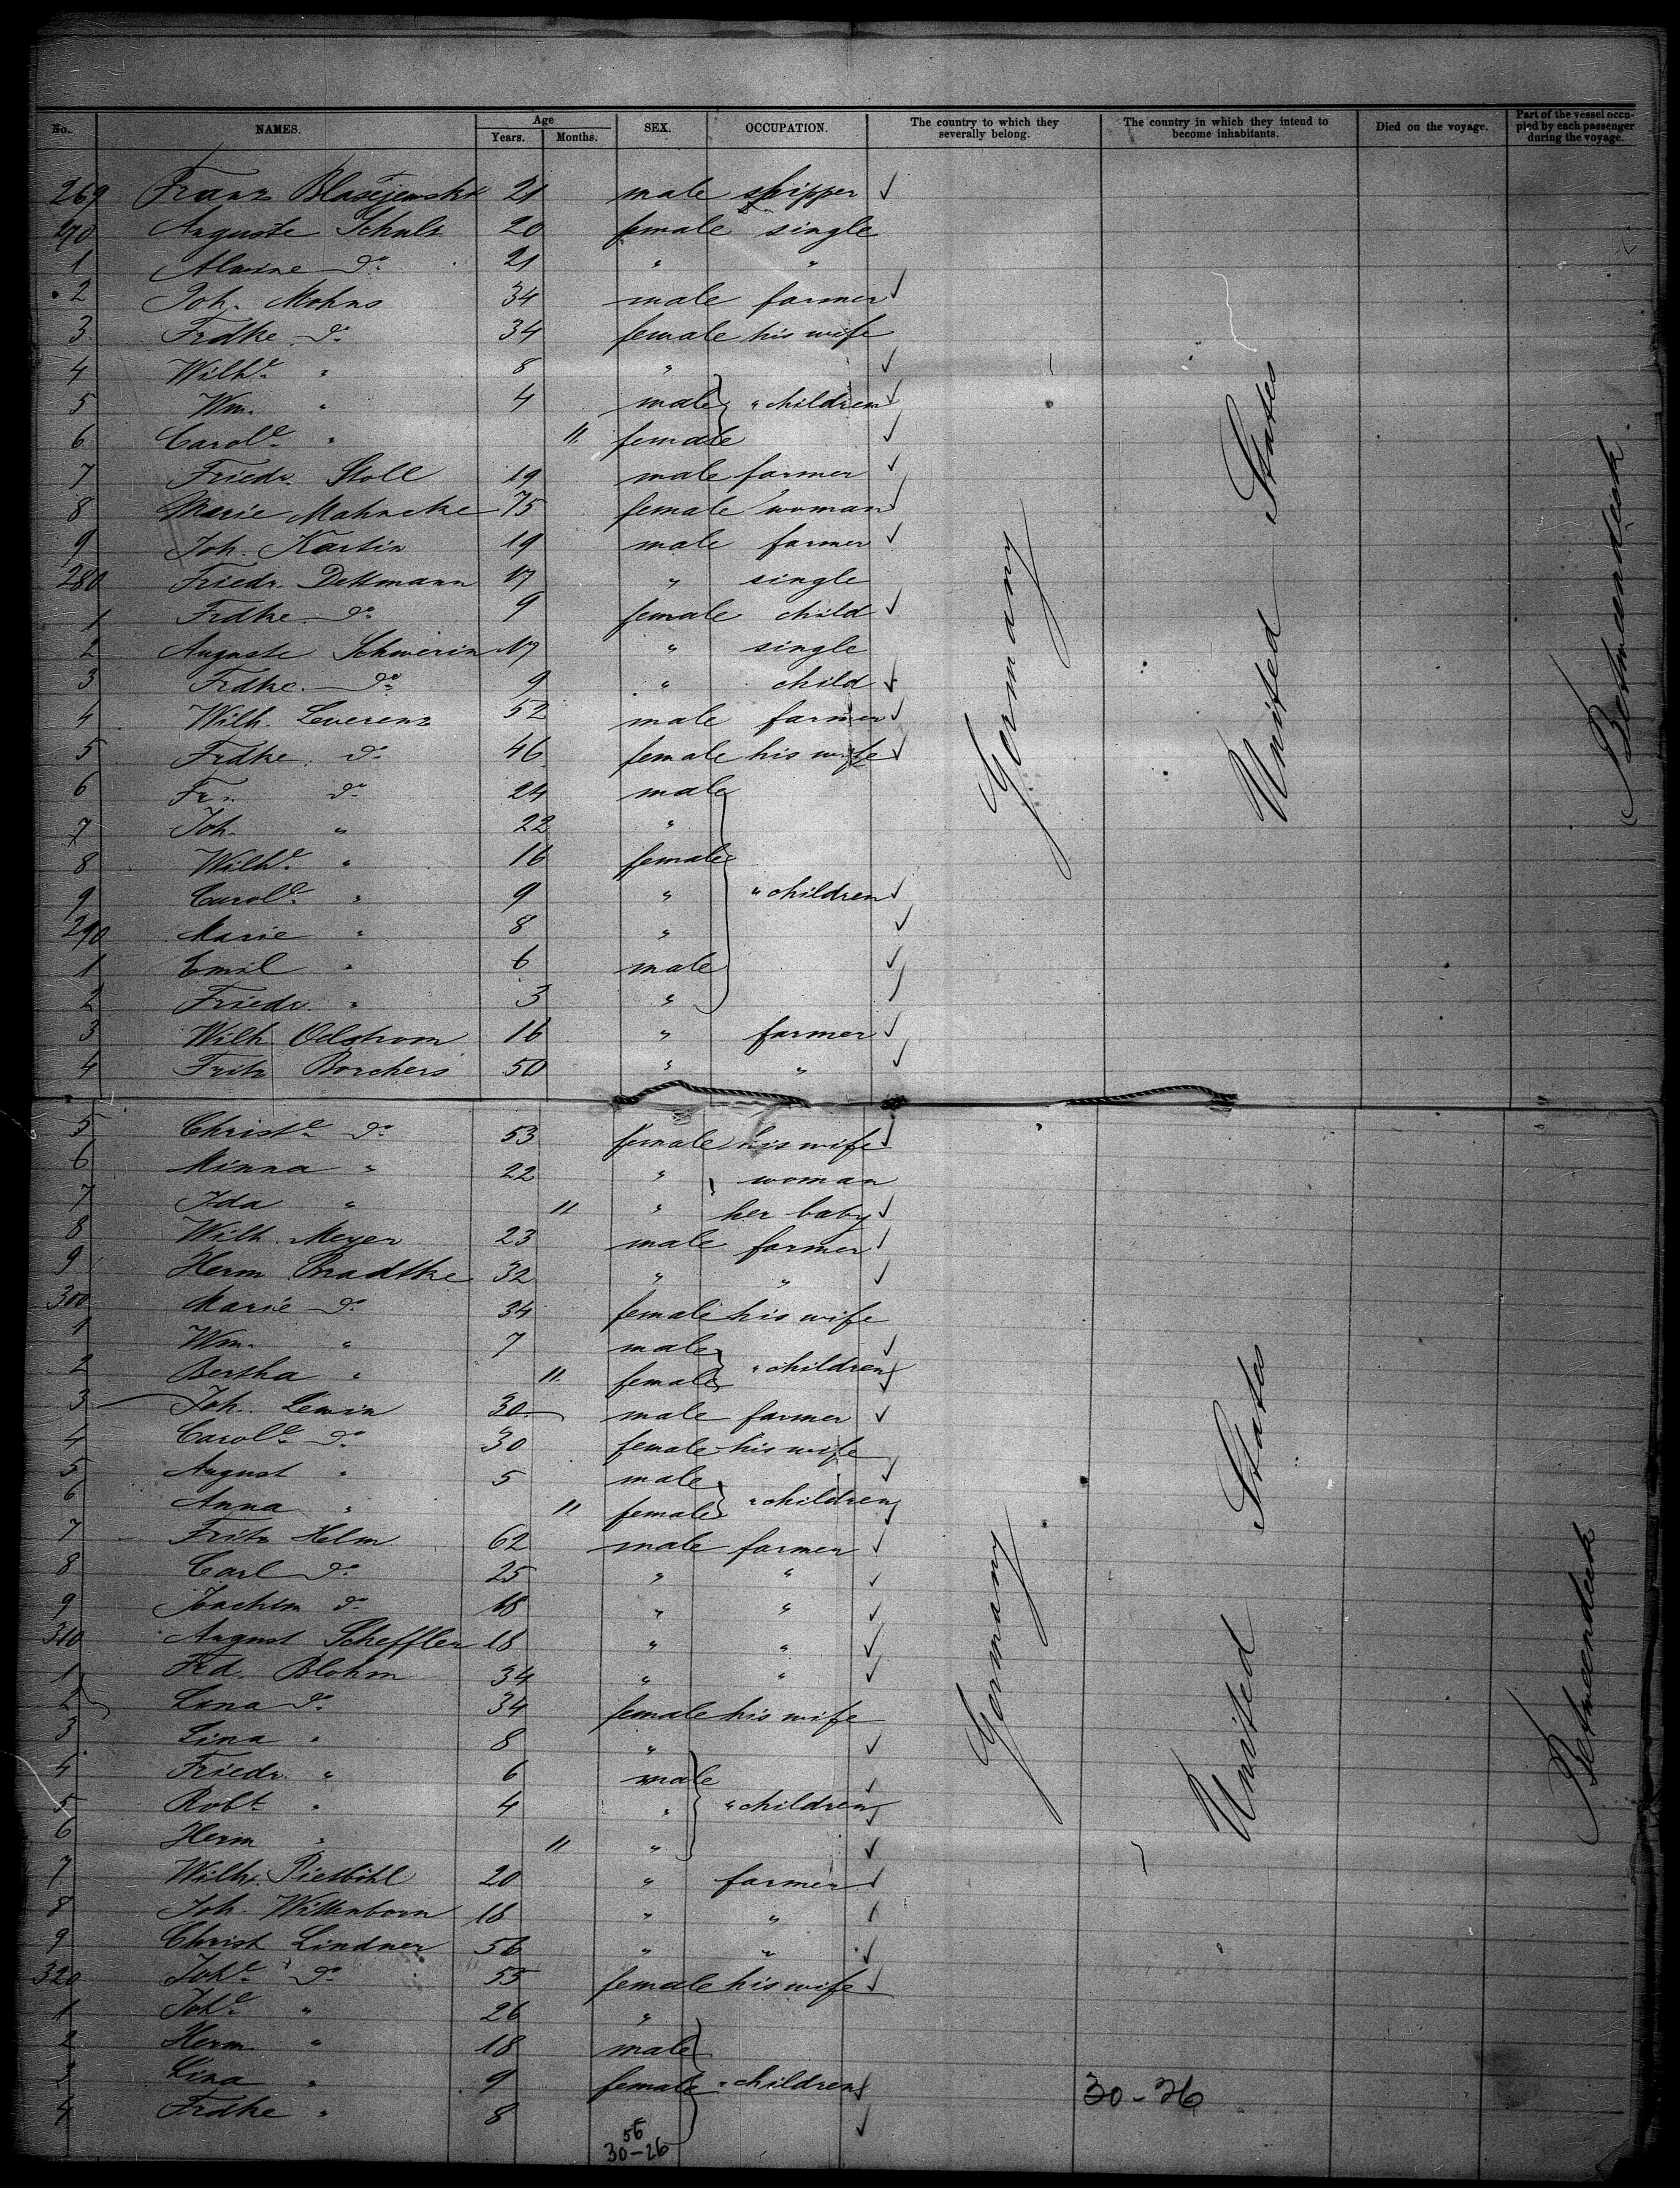 No. NAMES. Age Years. Months. SEX. OCCUPATION. The country to which they severally belong. The country in which they intend to become inhabitants. Died on the voyage. Part of the vessel occupied by each passenger during the voyage.
269 Franz Blasejewski 21 male shipper ✓
270 Auguste Schulz 20 female single
1 Alwine do 21 " "
2 Joh. Mohns 34 male farmer ✓
3 Frdke. do 34 female his wife
4 Wilhe. " 8 " ✓
5 Wm. " 4 male " children ✓
6 Carole. " 11 female ✓
7 Friedr. Stoll 19 male farmer ✓
8 Marie Mahncke 75 female woman ✓
9 Joh. Kastin 19 male farmer ✓
280 Friedr. Dettmann 17 " single
1 Frdke. do 9 female child ✓
2 Auguste Schwerin 17 " single
3 Frdke. do 9 " child ✓
4 Wilh. Leverenz 52 male farmer ✓
5 Frdke. do 46 female his wife ✓
6 Fr. do 24 male
7 Joh. " 22 "
8 Wilhe. " 16 female
9 Carole. " 9 " " children ✓
290 Marie " 8 " ✓
1 Emil " 6 male ✓
2 Friedr. " 3 "
3 Wilh. Oelstrom 16 " farmer ✓
4 Fritz Borchers 50 " " ✓
5 Christe. do 53 female his wife ✓
6 Minna " 22 " woman
7 Ida " 11 " her baby ✓
8 Wilh. Meyer 23 male farmer ✓
9 Herm. Bradtke 32 " " ✓
300 Marie do 34 female his wife
1 Wm. " 7 male ✓
2 Bertha " 11 female " children ✓
3 Joh. Lewin 30 male farmer ✓
4 Carole. do 30 female his wife
5 August " 5 male ✓
6 Anna " 11 female " children
7 Fritz Helm 62 male farmer ✓
8 Carl do 25 " " ✓
9 Joachim do 18 " " ✓
310 August Scheffler 18 " " ✓
1 Frd. Blohm 34 " " ✓
2 Lena do 34 female his wife
3 Lina " 8 " ✓
4 Friedr. " 6 male ✓
5 Robt. " 4 " " children
6 Herm " 11 " ✓
7 Wilh. 20 " farmer ✓
8 Joh. Wittenborn 18 " " ✓
9 Christ Lindner 56 " " ✓
320 Johe. do 55 female his wife ✓
1 Johe. " 26 "
2 Herm. " 18 male
3 Lina " 9 female " children
4 Frdke " 8 ✓
56
30-26
Germany
United States
Betweendeck.
Germany
United States
Betweendeck
30-26